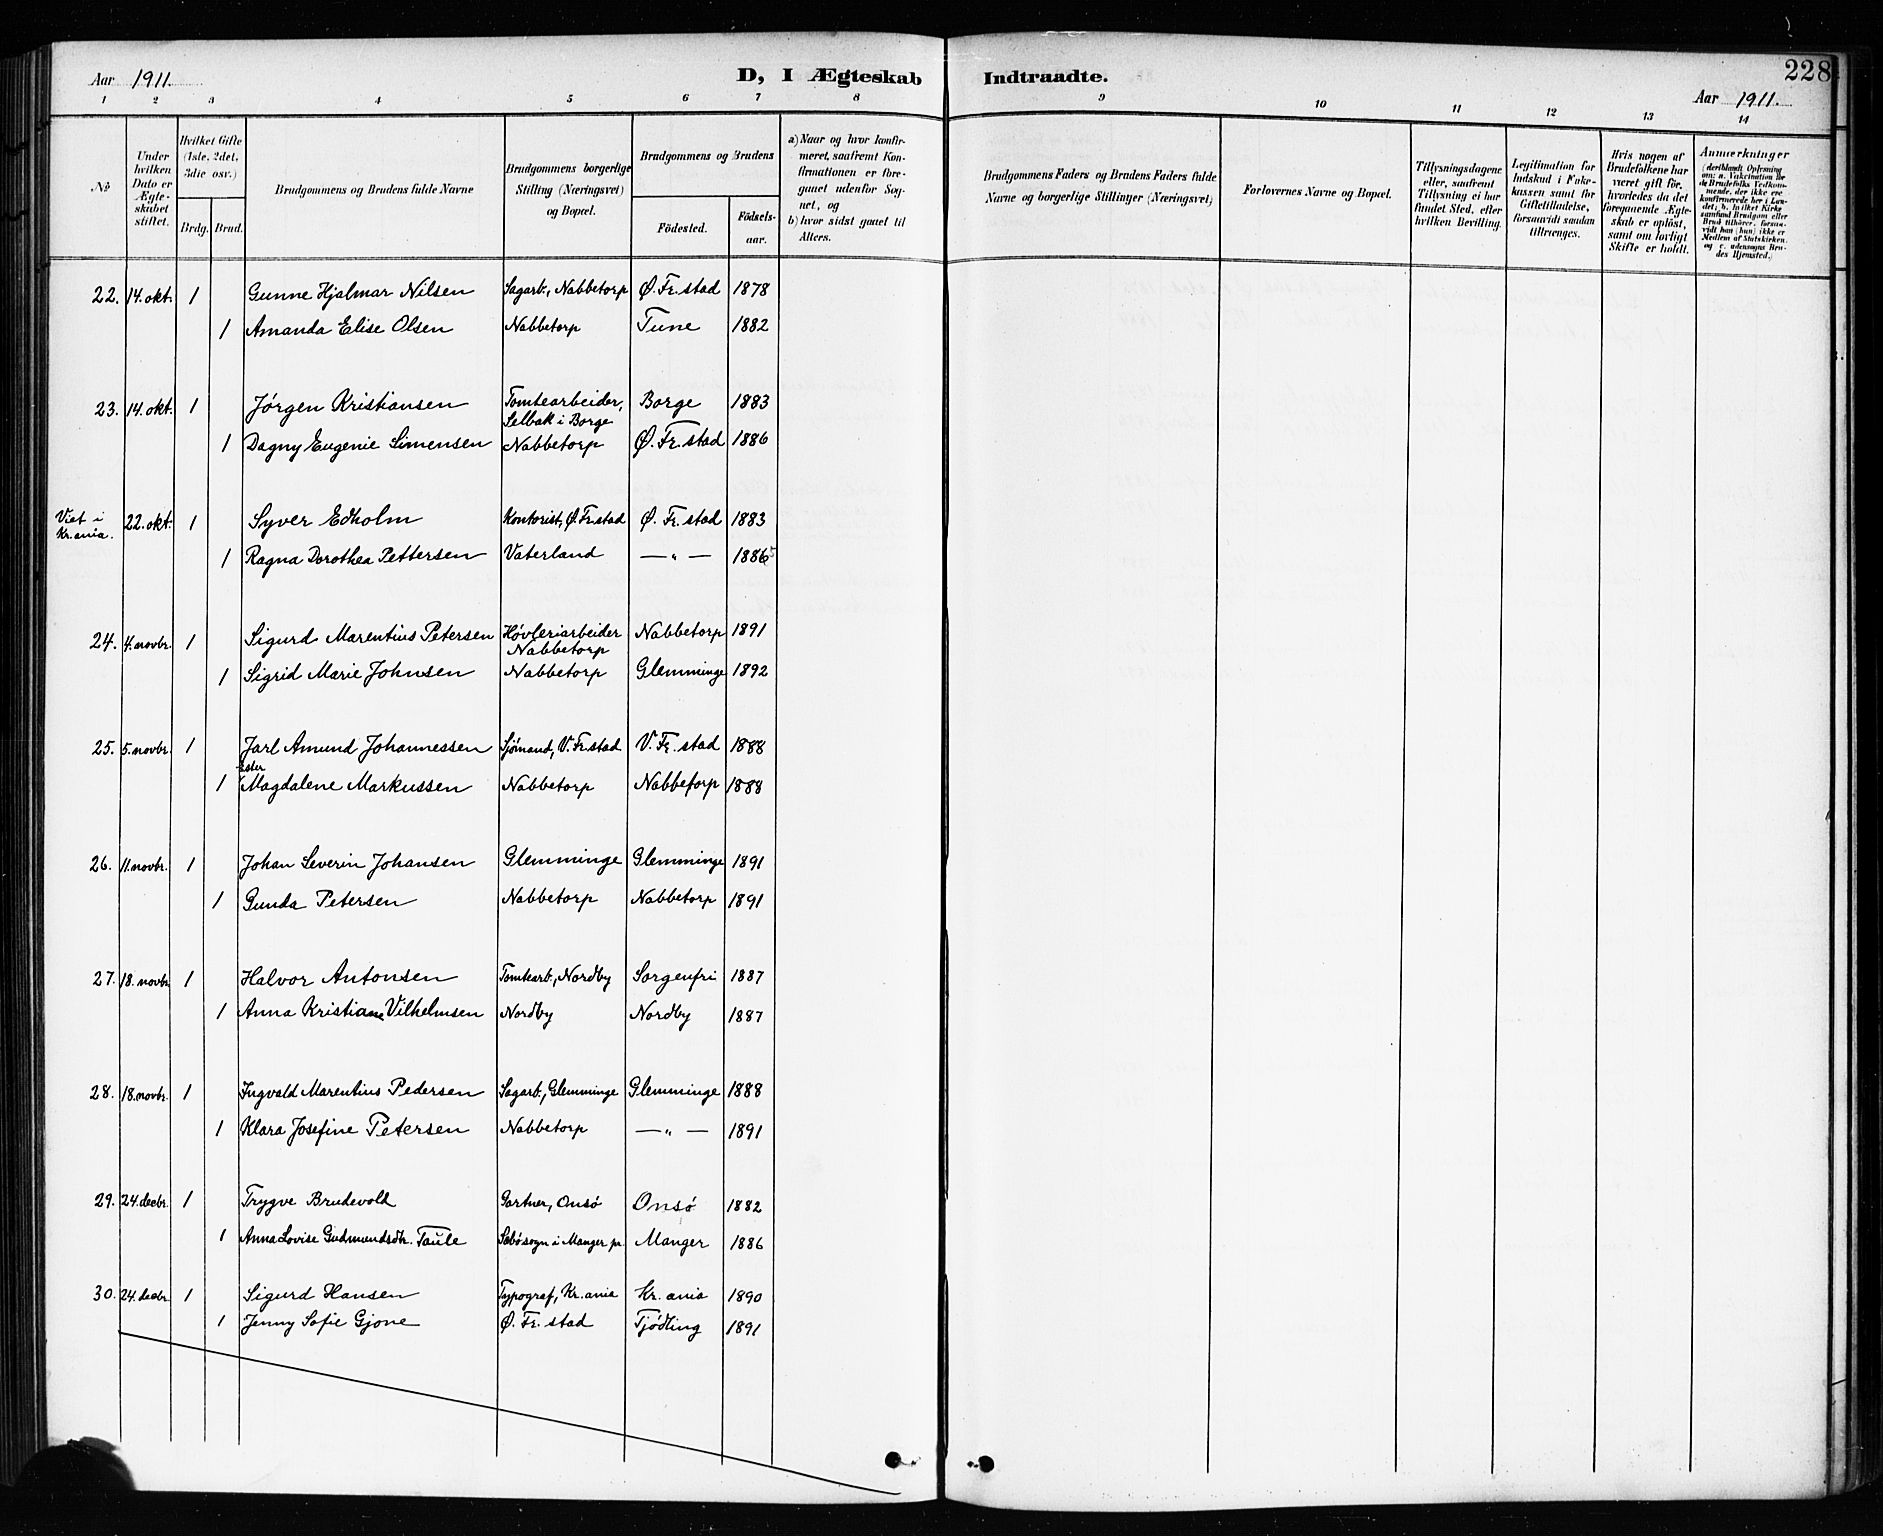 228
Aar 1911.
D, I Ægteskab Indtraadte.
Aar 1911.
1 2 3 4 5 6 7 8 9 10 11 12 13 14
No
Under hvilken Dato er Ægteskabet stiftet.
Hvilket Gifte (1ste, 2det, 3die osv.)
Brdg. Brud.
Brudgommens og Brudens fulde Navne
Brudgommens borgerlige Stilling (Næringsvei) og Bopæl.
Brudgommens og Brudens
Födested.
Födselsaar.
a) Naar og hvor konfirmeret, saafremt Konfirmationen er foregaaet udenfor Sognet, og
b) hvor sidst gaaet til Alters.
Brudgommens Faders og Brudens Faders fulde Navne og borgerlige Stillinger (Næringsvei)
Forlovernes Navne og Bopæl.
Tillysningsdagene eller, saafremt Tillysning ei har fundet Sted, efter hvilken Bevilling.
Legitimation for Indskud i Enkekassen samt for Giftetilladelse, forsaavidt saadan tiltrænges.
Hvis nogen af Brudefolkene har været gift för, hvorledes da det foregaaende Ægteskab er oplöst, samt om lovligt Skifte er holdt.
Anmærkninger
(deriblandt Oplysning om: a. Vakcination for de Brudefolks Vedkommende, der ikke ere konfirmerede her i Landet; b. hvilket Kirkesamfund Brudgom eller Brud tilhører, forsaavidt han (hun) ikke er Medlem af Statskirken, og c. udensogns Brudes Hjemsted.)
22. 14. okt. 1 Gunne Hjalmar Nilsen Sagarb., Nabbetorp Ø. Fr.stad 1878
1 Amanda Elise Olsen Nabbetorp Tune 1882
23. 14. okt. 1 Jørgen Kristiansen Tomtearbeider, Borge 1883
Selbak i Borge
1 Dagny Eugenie Simensen Nabbetorp Ø. Fr.stad 1886
Viet i
Kr.ania. 22. okt. 1 Syver Edholm Kontorist, Ø. Fr.stad Ø. Fr. stad 1883
1 Ragna Dorothea Pettersen Vaterland — „ — 1886
24. 4. novbr. 1 Sigurd Marentius Petersen Høvleriarbeider Nabbetorp 1891
Nabbetorp
1 Sigrid Marie Johnsen Nabbetorp Glemminge 1892
25. 5. novbr. 1 Jarl Amund Johannessen Sjømand, V. Fr.stad V. Fr. stad 1888
Ester
1 Magdalene Markussen Nabbetorp Nabbetorp 1888
26. 11. novbr. 1 Johan Severin Johansen Glemminge Glemminge 1891
1 Gunda Petersen Nabbetorp Nabbetorp 1891
27. 18. novbr. 1 Halvor Antonsen Tomtearb., Nordby Sorgenfri 1887
1 Anna Kristiane Vilhelmsen Nordby Nordby 1887
28. 18. novbr. 1 Ingvald Marentius Pedersen Sagarb., Glemminge Glemminge 1888
1 Klara Josefine Petersen Nabbetorp — „ — 1891
29. 24. decbr. 1 Trygve Brudevold Gartner, Onsø Onsø 1882
1 Anna Lovise Gudmundsdtr. Taule Sæbø sogn i Manger pr. Manger 1886
30. 24. decbr. 1 Sigurd Hansen Typograf, Kr. ania Kr. ania 1890
1 Jenny Sofie Gjone Ø. Fr. stad Tjødling 1891